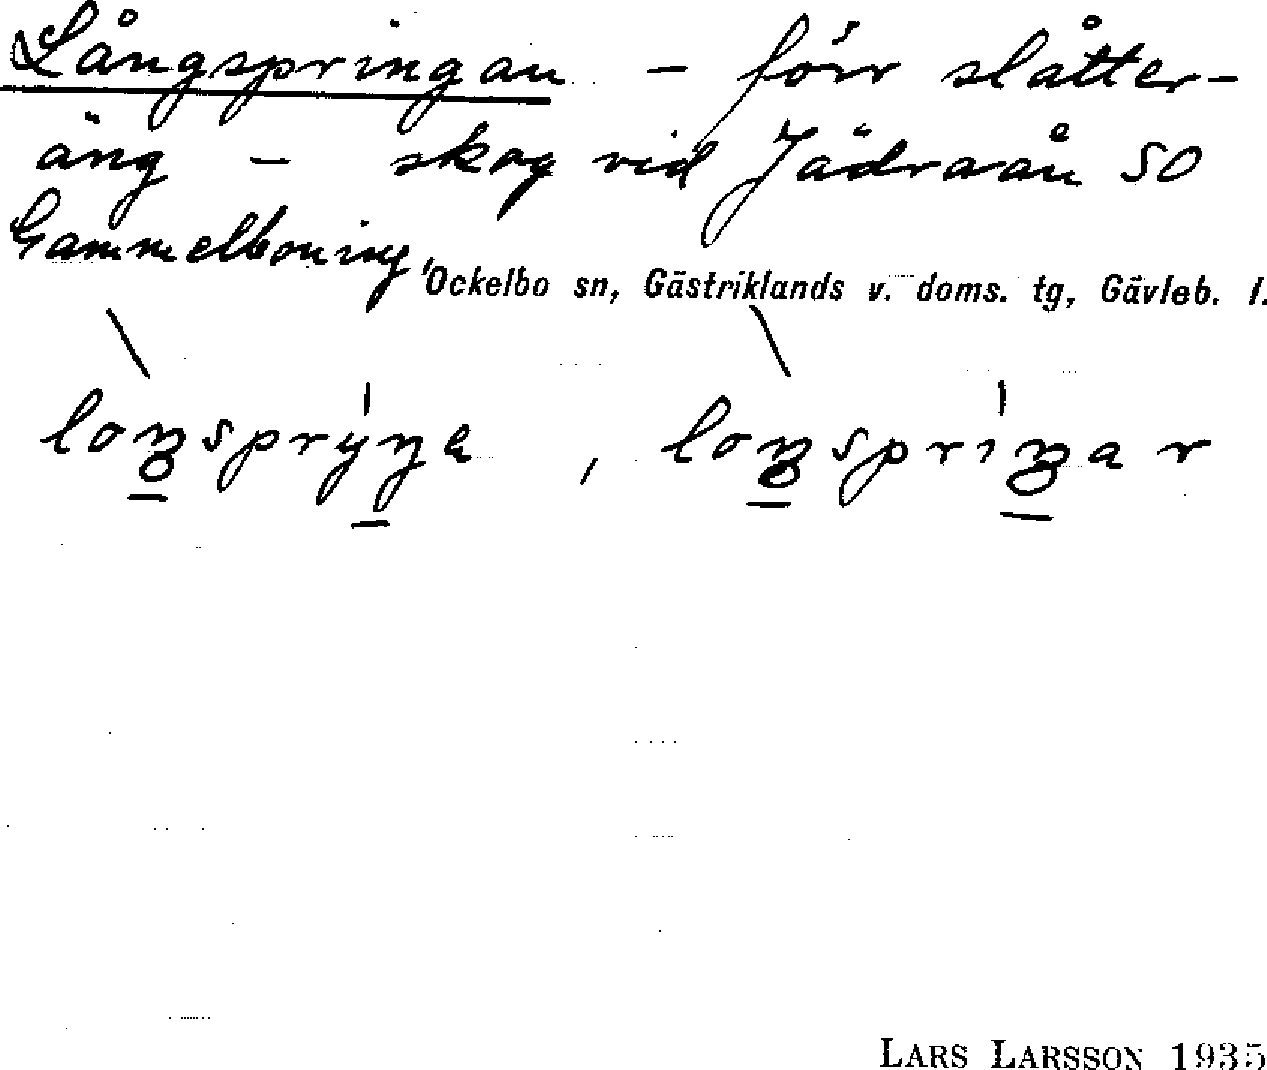 Långspringan – förr slåtter-
äng – skog vid Jädraån SO
Gammelboning,
Ockelbo sn, Gästriklands v. doms. tg, Gävleb. l.
loŋsprıŋa, loŋsprıŋar
LARS LARSSON 1935